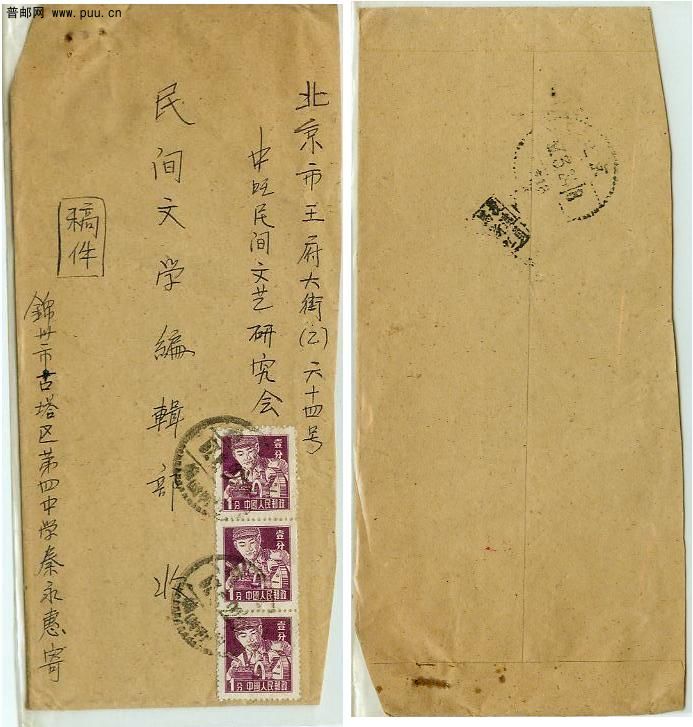 普邮网 www.puu.cn
北京市王府大街(乙)六十四号
中国民间文艺研究会
民间文学编辑部 收
稿件
錦州市古塔区第四中学秦永惠寄
壹分
1分 中國人民郵政
壹分
1分 中國人民郵政
壹分
1分 中國人民郵政